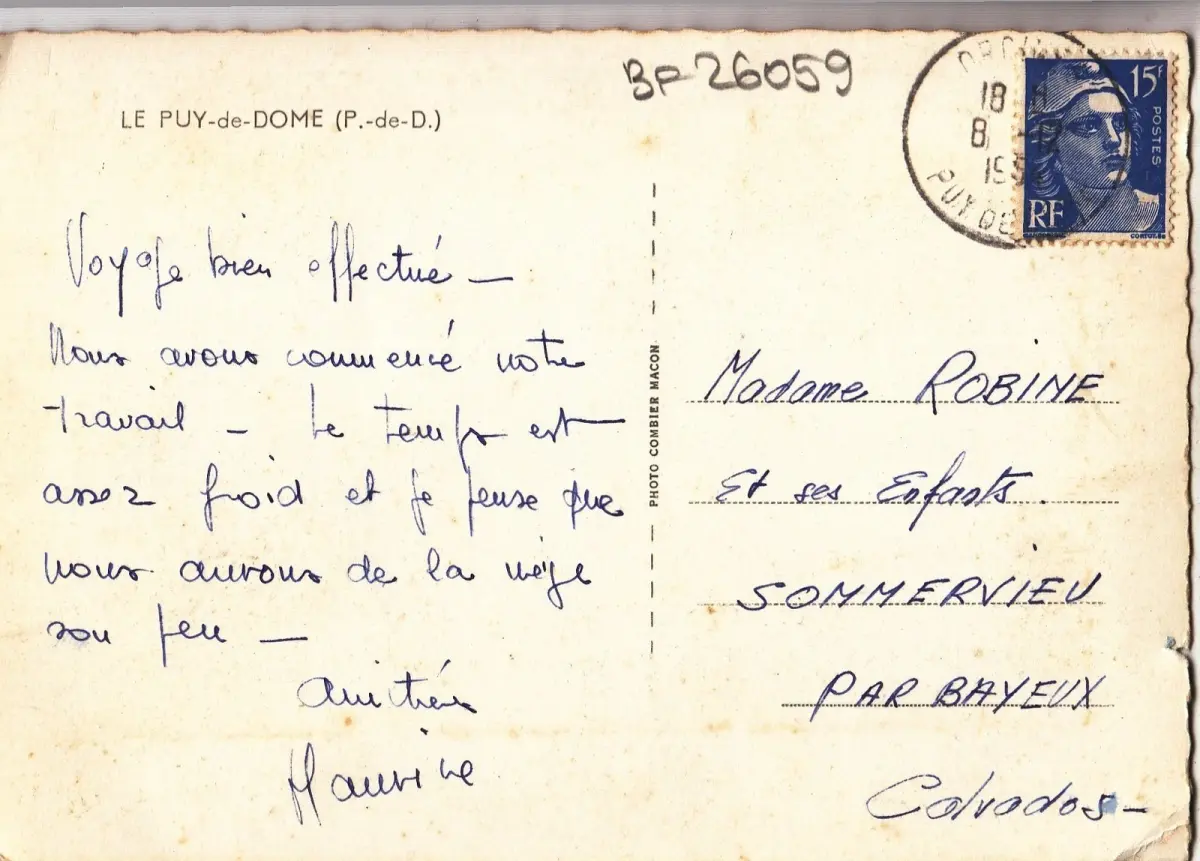 BF 26059
LE PUY-de-DOME (P.-de-D.)
18 H
8
PUY DE
15F
POSTES
RF
Voyage bien effectué —
Nous avons commencé notre
travail — Le temps est
assez froid et je pense que
nous aurons de la neige
sou peu —
Amitiés
Maurice
PHOTO COMBIER MACON
Madame ROBINE
Et ses Enfants.
SOMMERVIEU
PAR BAYEUX
Calvados —